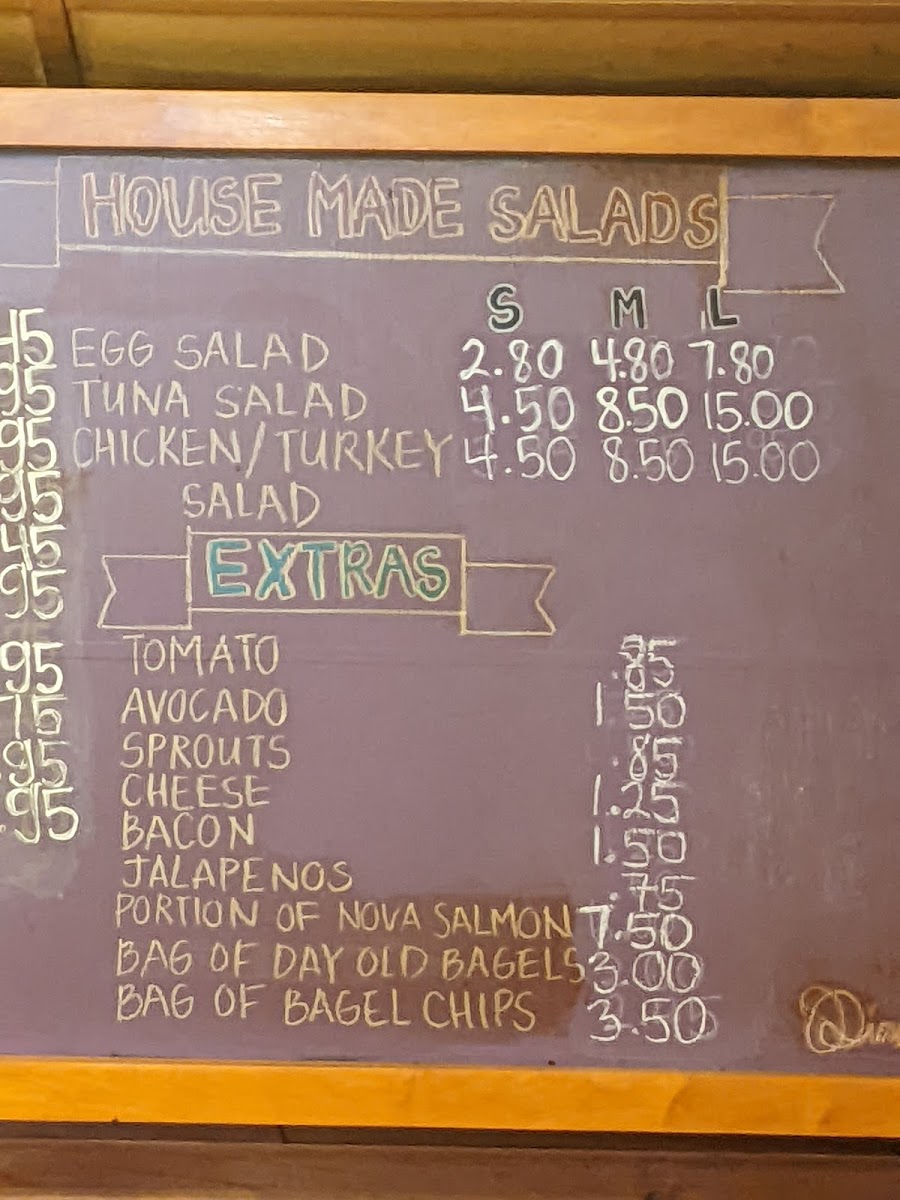 HOUSE MADE SALADS
S M L
EGG SALAD 2.80 4.80 7.80
TUNA SALAD 4.50 8.50 15.00
CHICKEN/TURKEY 4.50 8.50 15.00
SALAD
EXTRAS
TOMATO .85
AVOCADO 1.50
SPROUTS .85
CHEESE 1.25
BACON 1.50
JALAPENOS .75
PORTION OF NOVA SALMON 7.50
BAG OF DAY OLD BAGELS 3.00
BAG OF BAGEL CHIPS 3.50
45
95
95
95
45
95
95
75
.95
.95